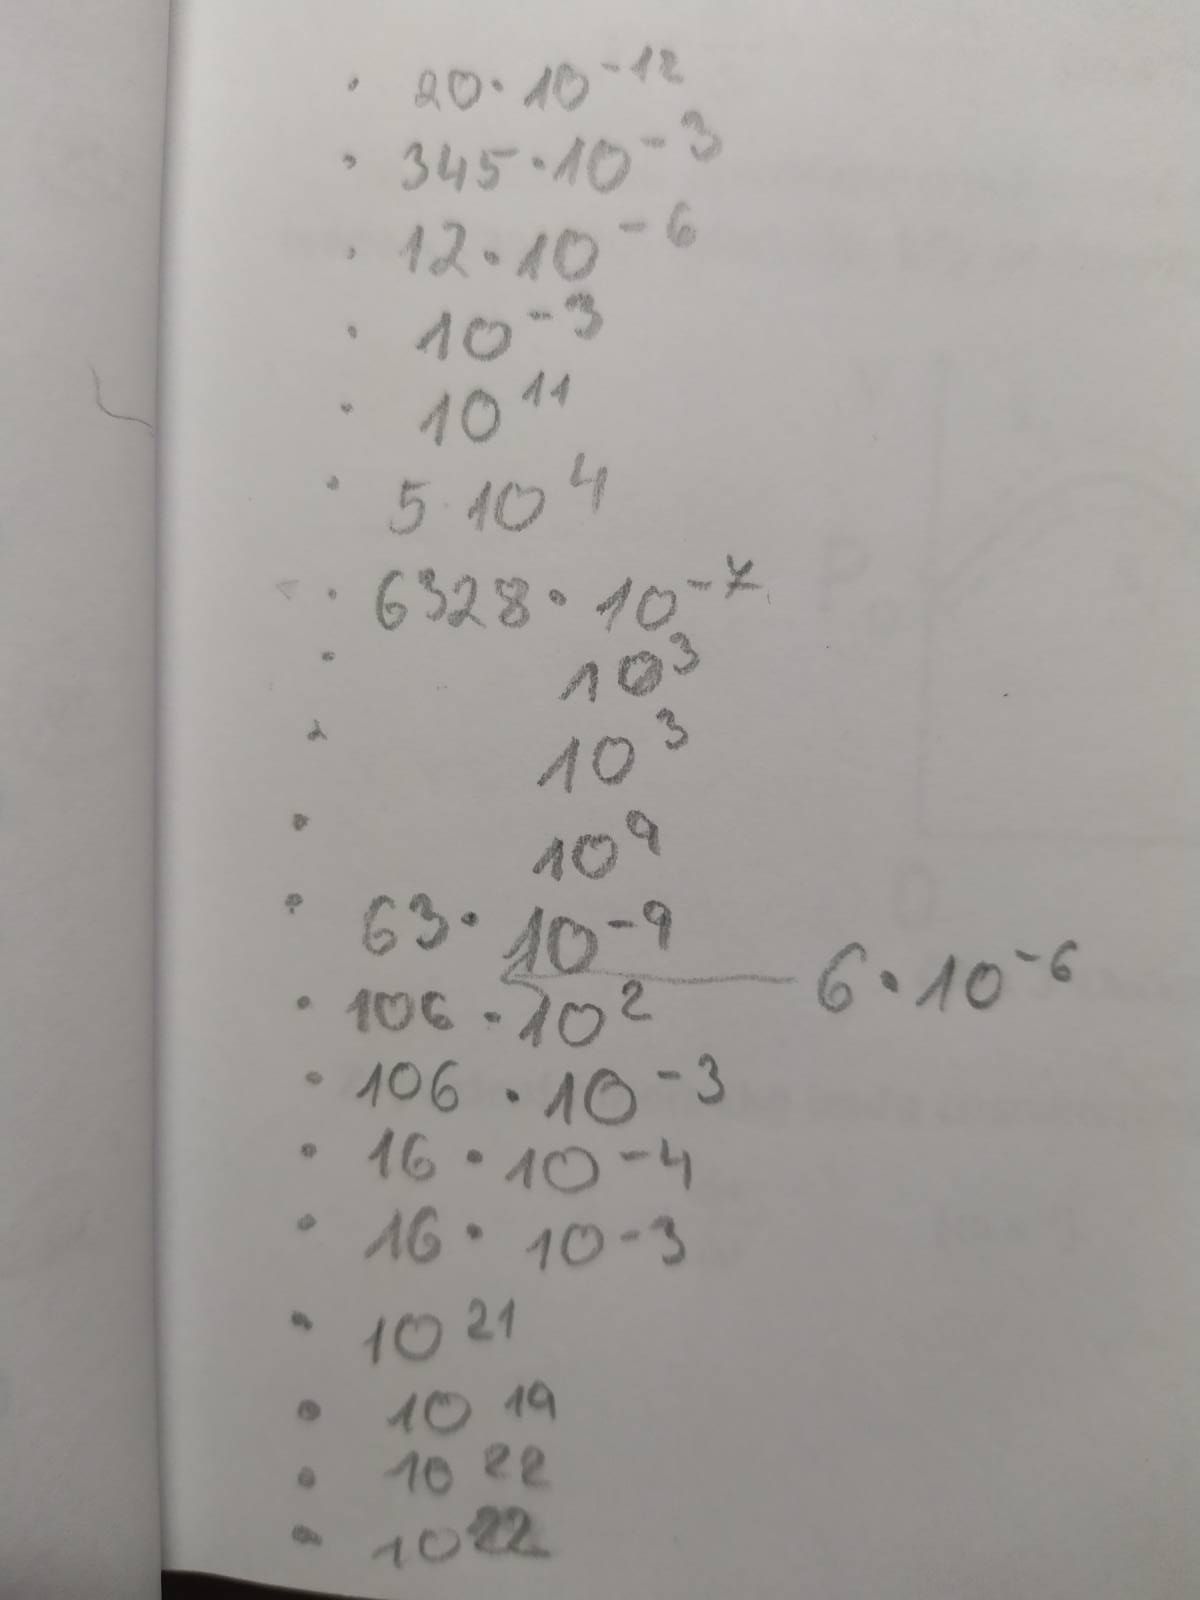 · 20·10⁻¹²
· 345·10⁻³
· 12·10⁻⁶
· 10⁻³
· 10¹¹
· 5·10⁴
· 6328·10⁻⁷
· 10³
· 10³
· 10⁹
· 63·10⁻⁹
6·10⁻⁶
· 106·10²
· 106·10⁻³
· 16·10⁻⁴
· 16·10⁻³
· 10²¹
· 10¹⁹
· 10²²
· 10²²